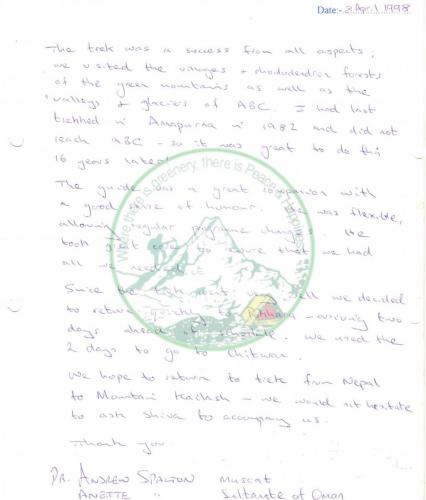 Date:- 3 April 1998
The trek was a success from all aspects;
we visited the villages + rhodudendron forests
of the green mountains as well as the
valleys + glaciers of ABC. I had last
trekked in Annapurna in 1982 and did not
reach ABC - so it was great to do this
16 years later.
The guide was a great companion with
a good sense of humour. He was flexible,
allowing regular programe changes. He
took great care to ensure that we had
all we needed.
Since the well we decided
to return quickly to Pokhara - arriving two
days ahead of schedule. We used the
2 days to go to Chitwan.
We hope to return to trek from Nepal
to Mountain Kailash - we would not hesitate
to ask Shiva to accompany us.
Thank you.
DR. ANDREW SPALTON MUSCAT
ANETTE " Sultanate of Oman
Where there is greenery, there is Peace & Happiness